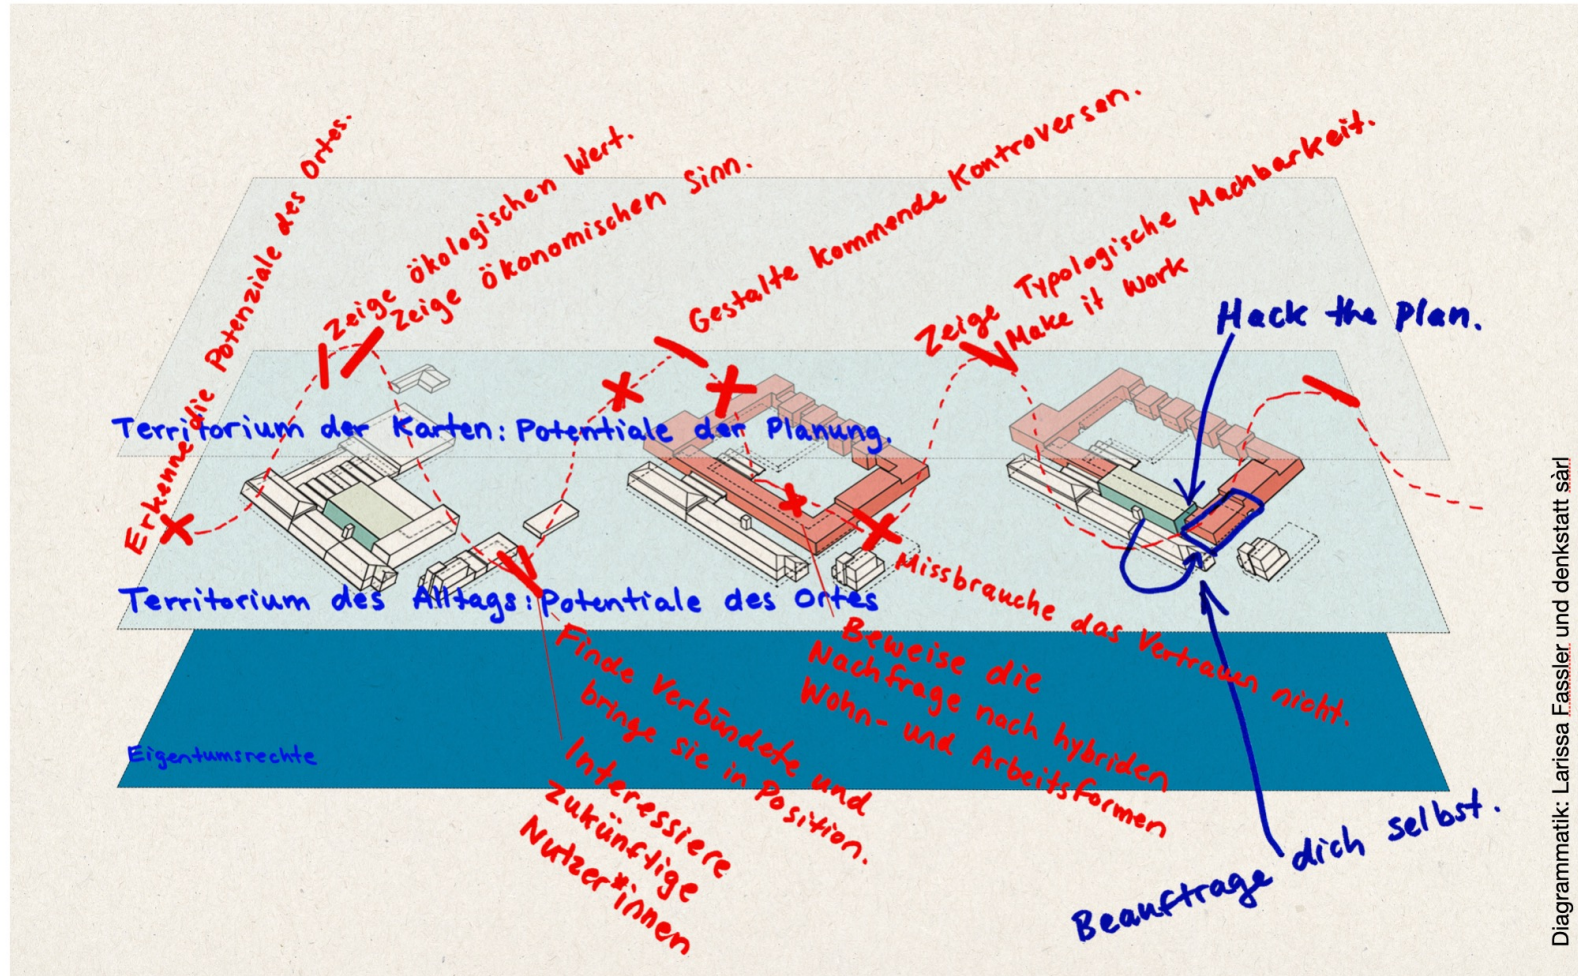 Erkenne die Potenziale des Ortes.
Zeige ökologischen Wert.
Zeige Ökonomischen Sinn.
Gestalte kommende Kontroversen.
Zeige Typologische Machbarkeit.
Make it Work
Hack the Plan.
Territorium der Karten: Potentiale der Planung.
Territorium des Alltags: Potentiale des Ortes
Missbrauche das Vertrauen nicht.
Beweise die
Nachfrage nach hybriden
Wohn- und Arbeitsformen
Finde Verbündete und
bringe sie in Position.
Interessiere
zukünftige
Nutzer*innen
Eigentumsrechte
Beauftrage dich selbst.
Diagrammatik: Larissa Fassler und denkstatt sàrl